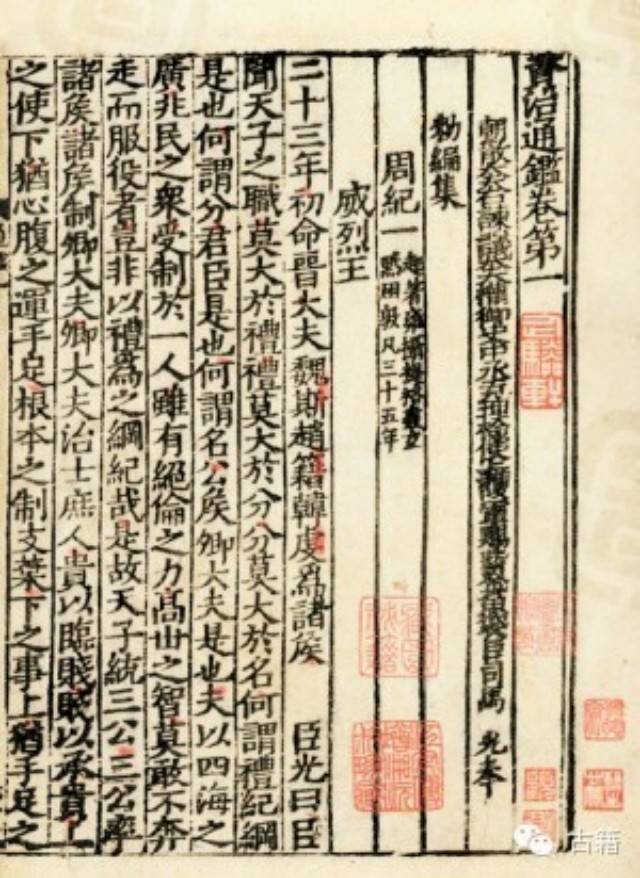 資治通鑑卷第一
朝散大夫右諫議大夫權御史中丞充理檢使上護軍賜紫金魚袋臣司馬 光奉
勑編集
周紀一 起著雍攝提格盡玄
黓困敦凡三十五年
威烈王
二十三年初命晉大夫魏斯趙籍韓虔爲諸侯 臣光曰臣
聞天子之職莫大於禮禮莫大於分分莫大於名何謂禮紀綱
是也何謂分君臣是也何謂名公侯卿大夫是也夫以四海之
廣兆民之衆受制於一人雖有絕倫之力高世之智莫敢不奔
走而服役者豈非以禮爲之綱紀哉是故天子統三公三公率
諸侯諸侯制卿大夫卿大夫治士庶人貴以臨賤賤以承貴上
之使下猶心腹之運手足根本之制支葉下之事上猶手足之
古籍